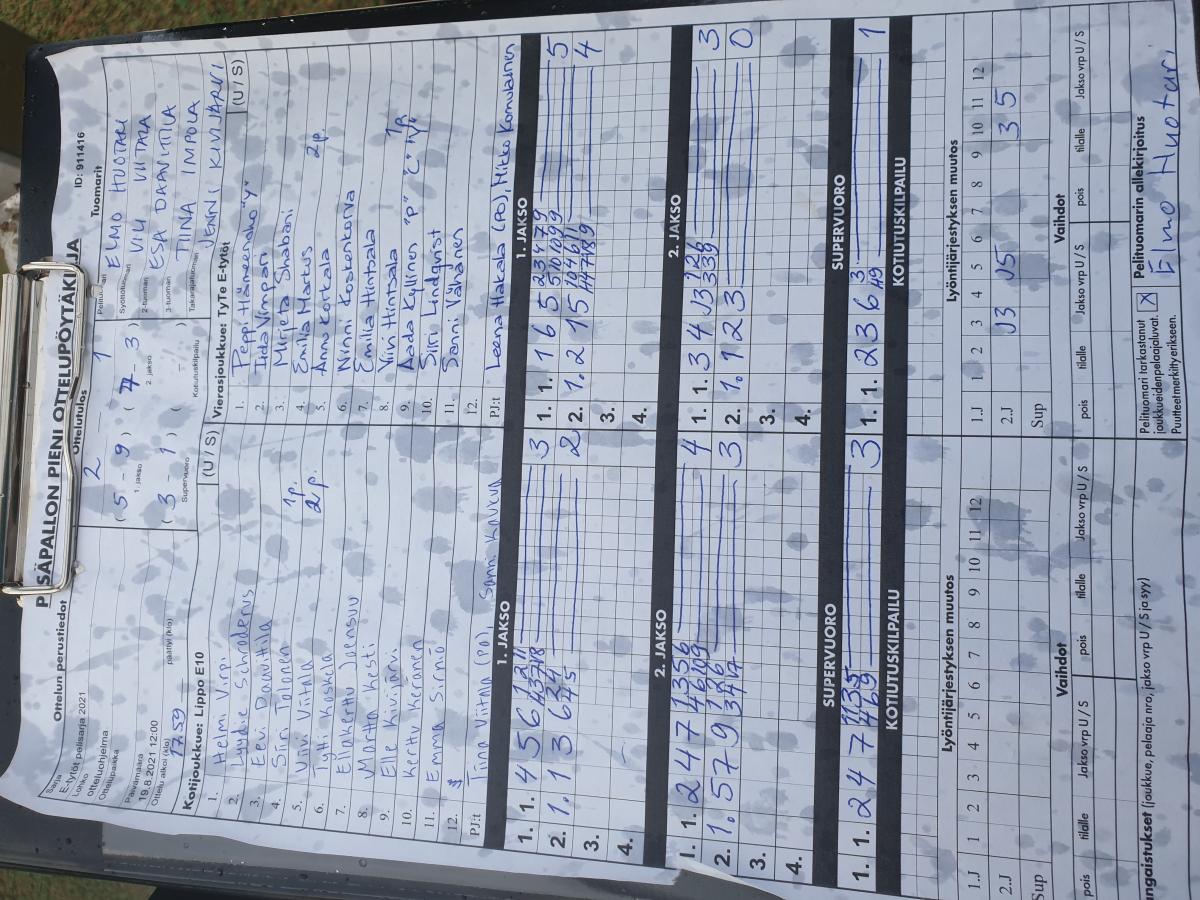 PESÄPALLON PIENI OTTELUPÖYTÄKIRJA
ID: 911416
Ottelun perustiedot
Sarja
E-tytöt pelisarja 2021
Lohko
Otteluohjelma
Ottelupaikka
Päivämäärä
19.8.2021 12:00
Ottelu alkoi (klo) 17.59
päättyi (klo)
Ottelutulos
2 1
( 5 - 9 ) ( 7 - 3 )
1. jakso 2. jakso
( 3 - 1 ) ( )
Supervuoro Kotiutuskilpailu
Tuomarit
ELMO HUOTARI
Syöttötuomari VILI VIITALA
2-tuomari ESA DAAVITTILA
3-tuomari TIINA IMPOLA
Takarajatuomari JENNI KIVIJÄRVI
Kotijoukkue: Lippo E10 (U / S)
1. Helmi Virpi
2. Lyydie Schroderus
3. Eevi Daavitila
4. Siiri Talonen
5. Vuvi Viitala 1p.
6. Tytti Koskela 2p.
7. Eilakerttu Juensuu
8. Martta Kesti
9. Elle Kivijärvi
10. Kerttu Keränen
11. Emma Sirniö
12.
PJ:t Tiina Viitala (PO), Sanni
Vierasjoukkue: TyTe E-tytöt (U / S)
1. Peppi Hämeenaho "Y"
2. Iida Vimpari
3. Mirjeta Shabani
4. Emilia Markus
5. Anno Korkala 2p.
6. Ninni Koskenkorva
7. Emilia Hintsala
8. Viivi Hintsala 1p
9. Aada Kyllinen "P"
10. Siiri Lindqvist
11. Sanni Vähänen
12.
PJ:t Leena Hakala (PO), Mikko Komulainen
1. JAKSO 1. JAKSO
1. 1. 4 5 6 3
2. 1. 1 3 6 2
3.
4.
1. 1. 1 6 5 5
2. 1. 2 15 4
3.
4.
2. JAKSO 2. JAKSO
1. 1. 2 4 7 4
2. 1. 5 7 9 3
3.
4.
1. 1. 3 4 3
2. 1. 1 2 3 0
3.
4.
SUPERVUORO SUPERVUORO
1. 1. 2 4 7 3
1. 1. 2 3 6 1
KOTIUTUSKILPAILU KOTIUTUSKILPAILU
Lyöntijärjestyksen muutos Lyöntijärjestyksen muutos
1.J 1 2 3 4 5 6 7 8 9 10 11 12
2.J
Sup
1.J 1 2 3 4 5 6 7 8 9 10 11 12
2.J J3 J5 3 5
Sup
Vaihdot Vaihdot
pois tilalle Jakso vrp U / S pois tilalle Jakso vrp U / S
pois tilalle Jakso vrp U / S pois tilalle Jakso vrp U / S
Rangaistukset (joukkue, pelaaja nro, jakso vrp U / S ja syy)
Pelituomari tarkastanut X
joukkueidenpelaajaluvat.
Puutteetmerkityerikseen.
Pelituomarin allekirjoitus
Elmo Huotari